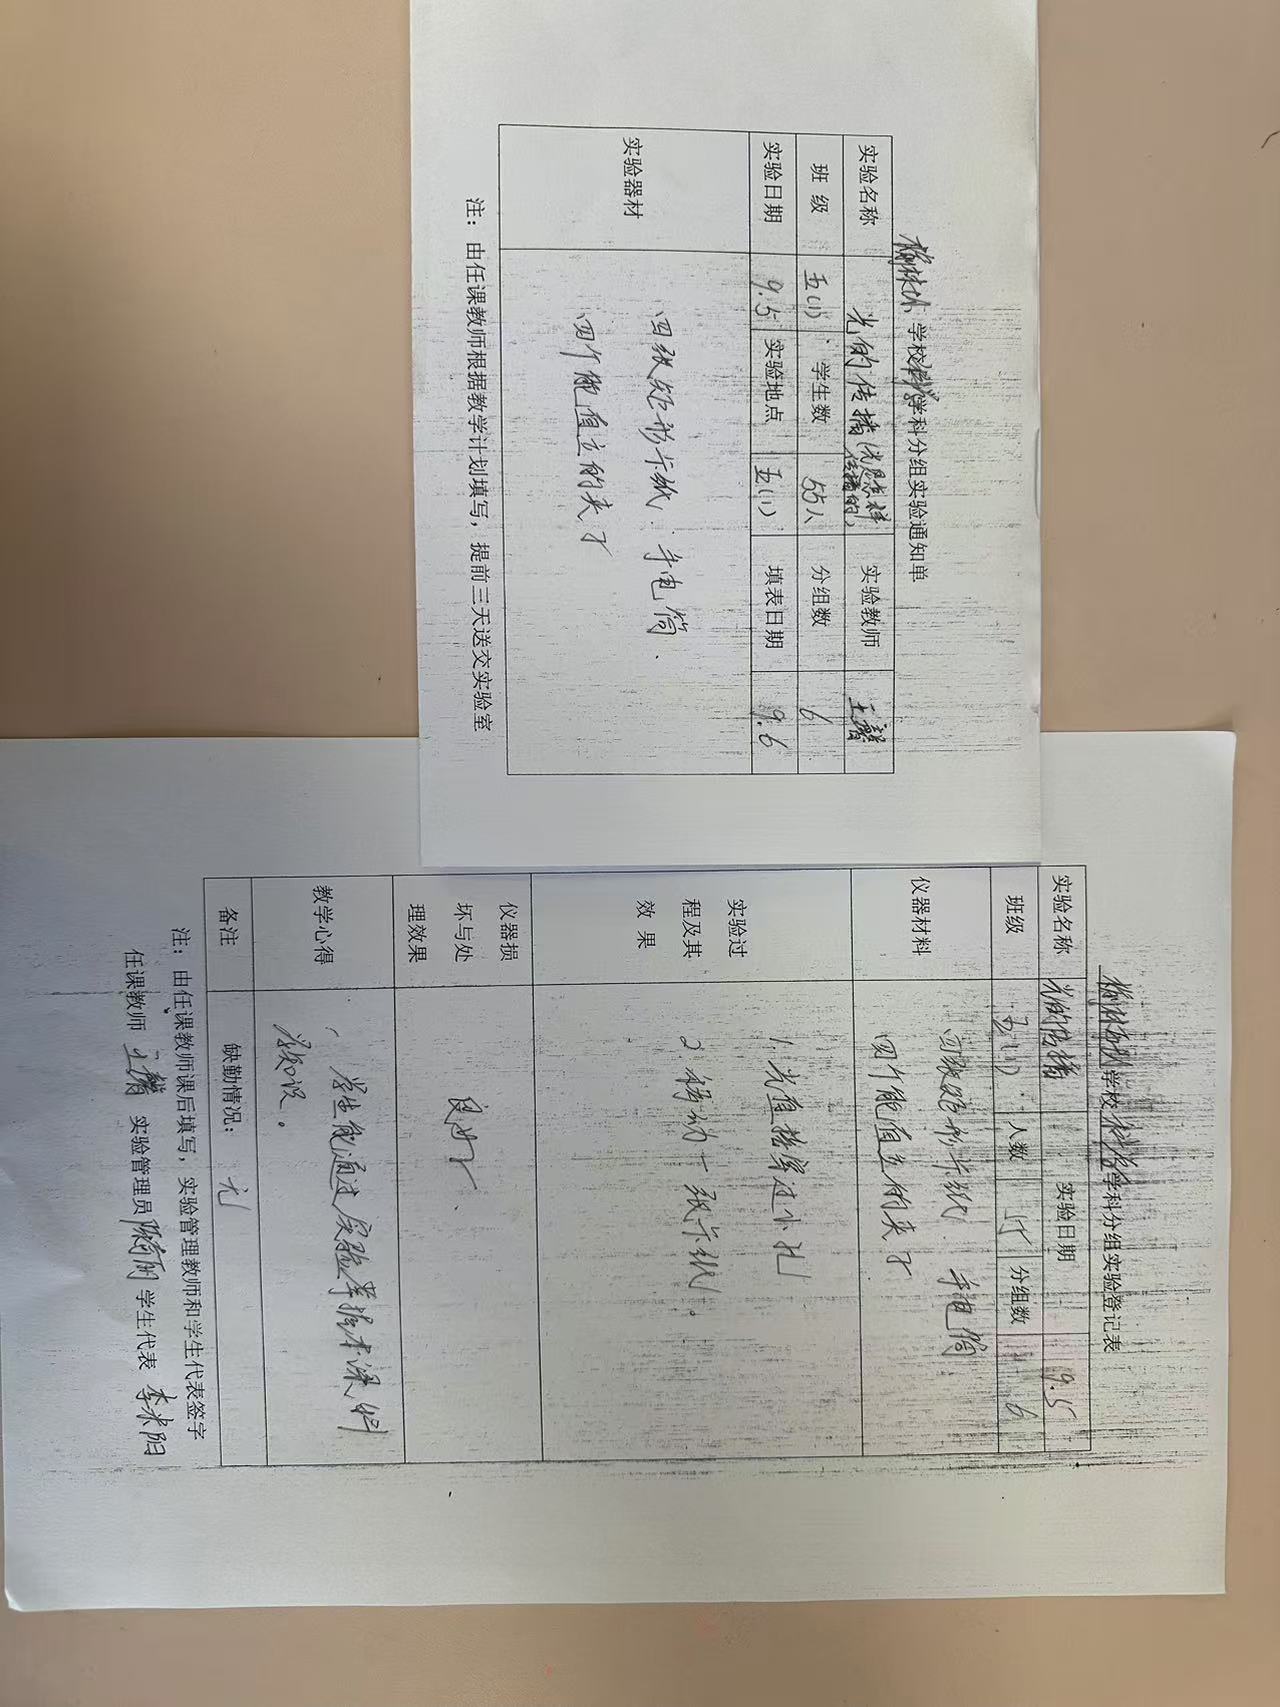 学校科学学科分组实验通知单
实验名称 光的传播(光是怎样传播的) 实验教师 王
班 级 五(1) 学生数 55人 分组数 6
实验日期 9.5 实验地点 五(1) 填表日期 9.6
实验器材
四张矩形卡纸. 手电筒.
四个能直立的夹子
注：由任课教师根据教学计划填写，提前三天送交实验室
学校科学学科分组实验登记表
实验名称 光的传播 实验日期 9.5
班级 五(1) 人数 55 分组数 6
仪器材料
四张矩形卡纸. 手电筒.
四个能直立的夹子
实验过程及其效 果
1. 光直接穿过小孔
2. 移动一张卡纸.
仪器损坏与处理效果
良好.
教学心得
学生能通过实验掌握本课的
学知识。
备注 缺勤情况：无
注：由任课教师课后填写，实验管理教师和学生代表签字
任课教师 王 实验管理员 陈 学生代表 李 阳